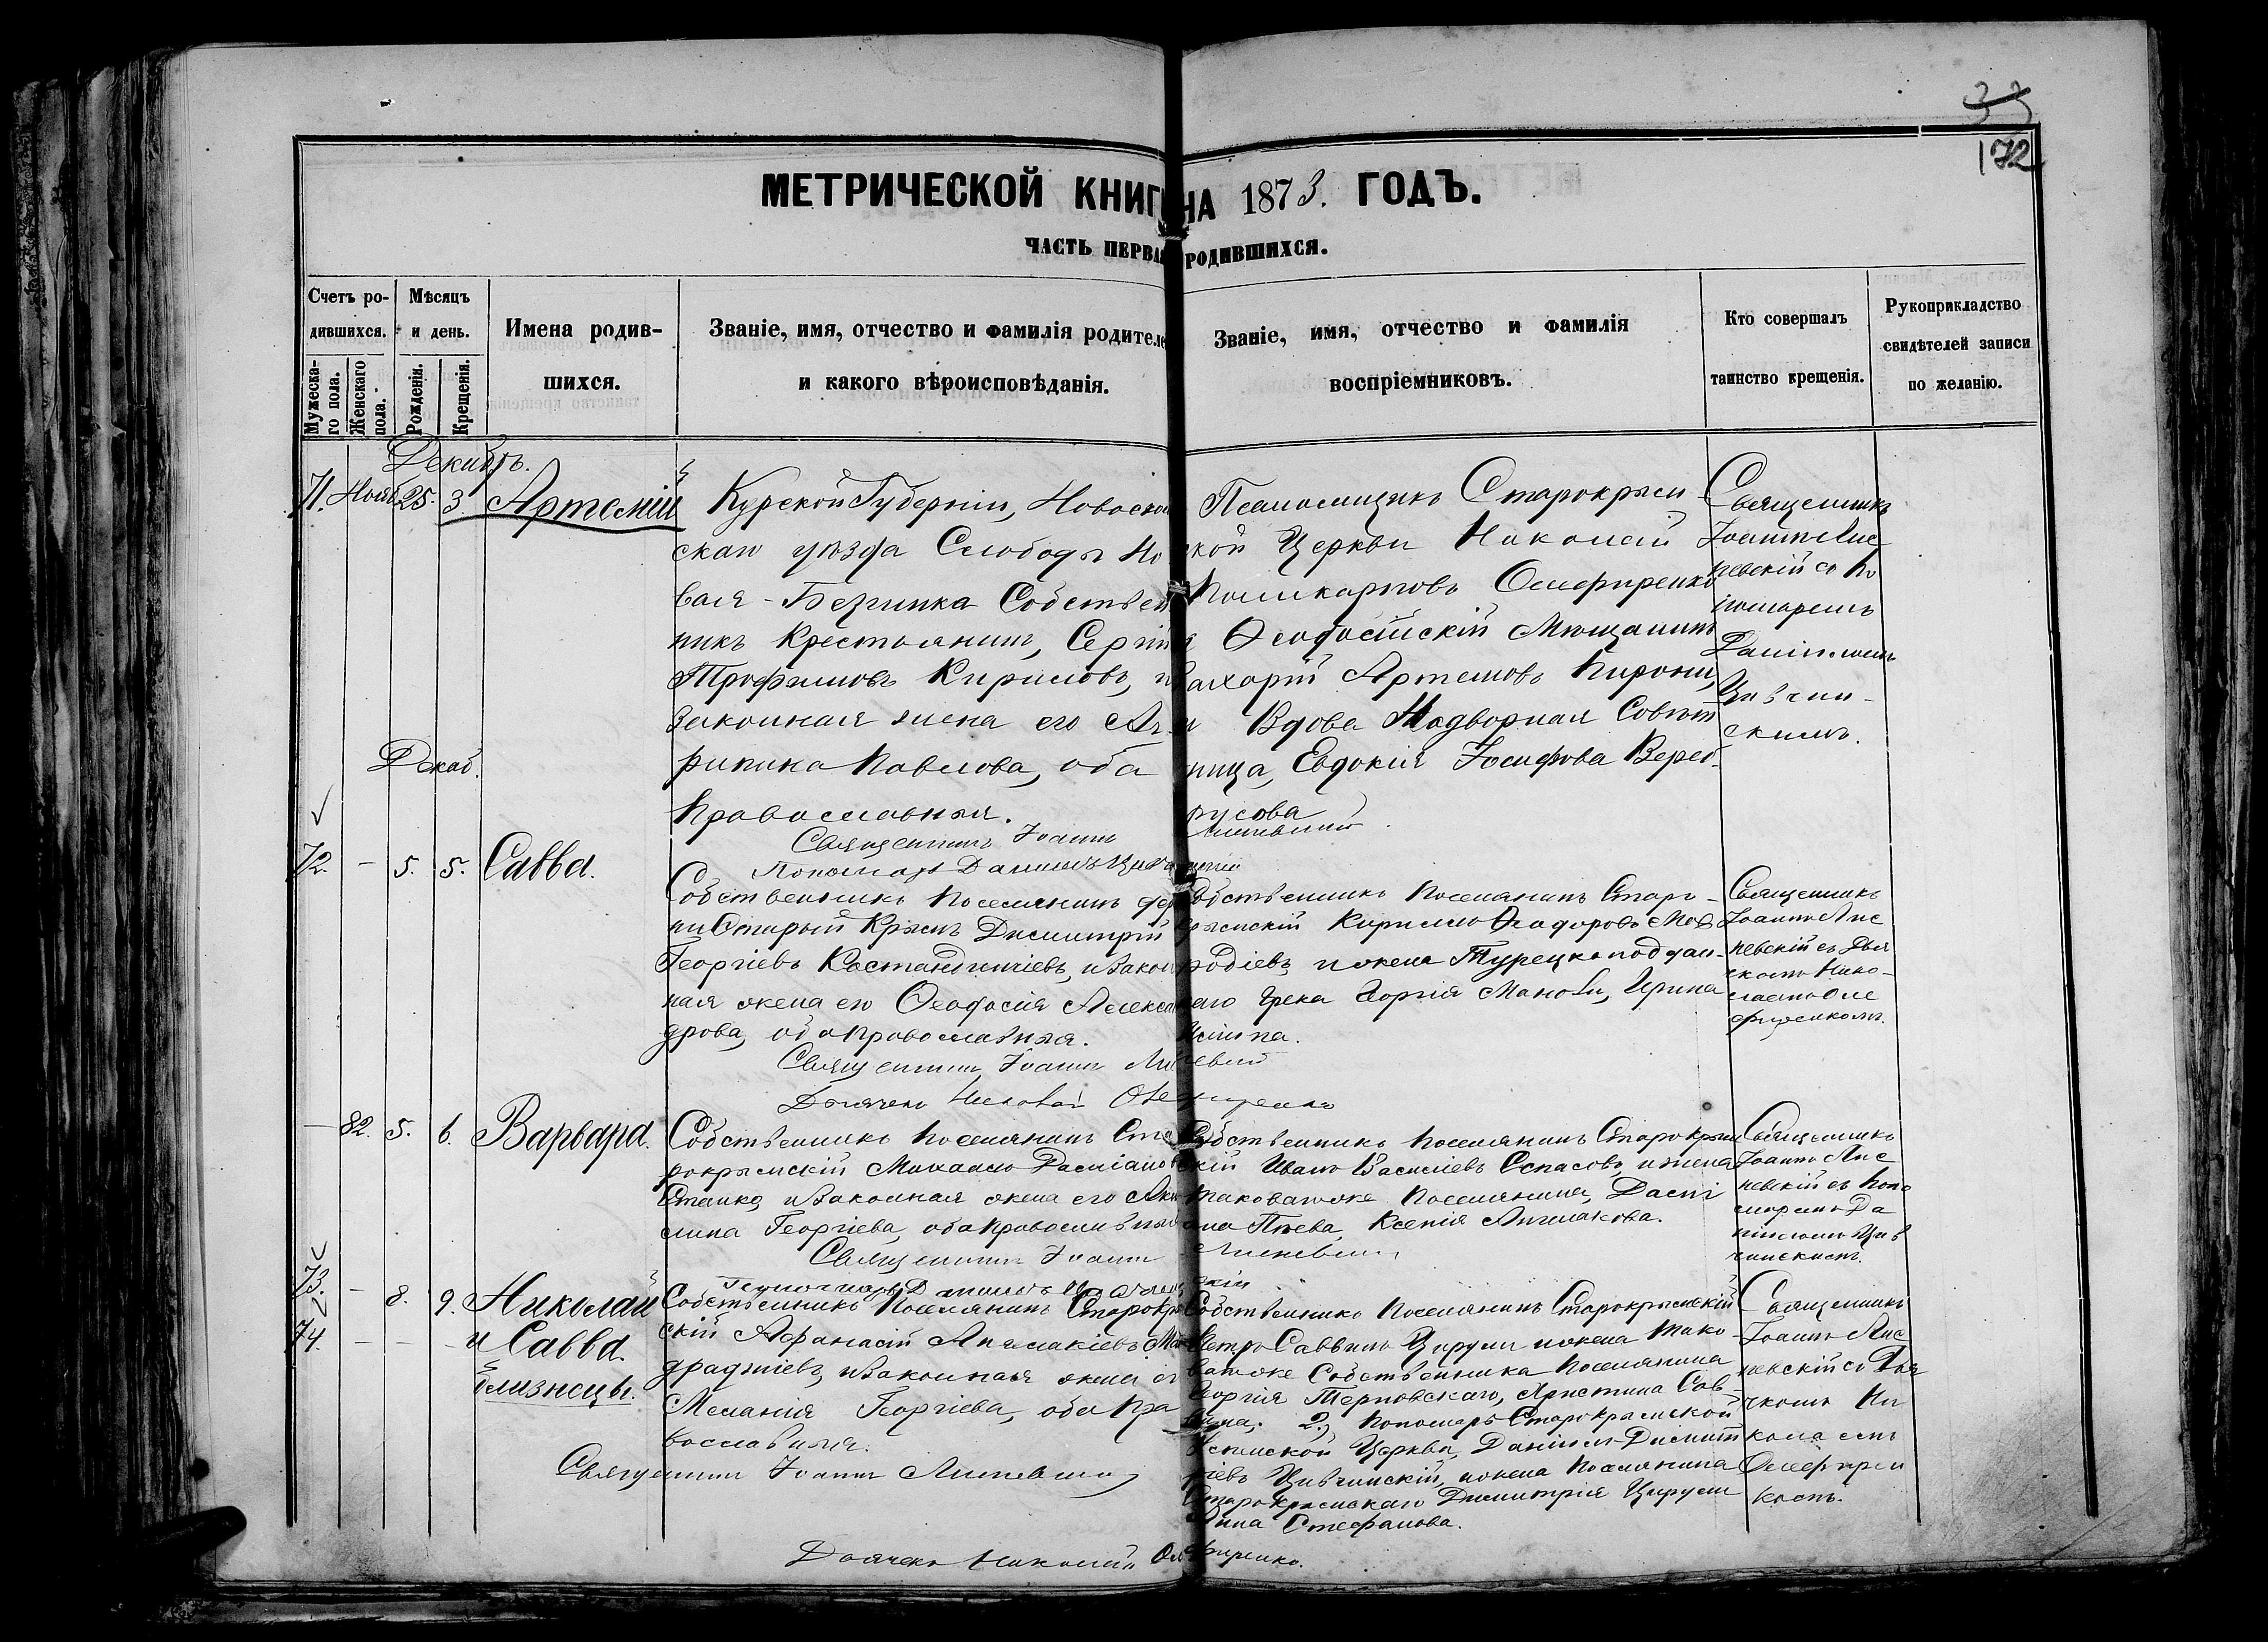 33
172
МЕТРИЧЕСКОЙ КНИГИ НА 1873. ГОДЪ.
ЧАСТЬ ПЕРВАЯ РОДИВШИХСЯ.
Счетъ ро-
дившихся.
Мужеска-
го пола.
Женскаго
пола.
Мѣсяцъ
и день.
Рожденія.
Крещенія.
Имена родив-
шихся.
Званіе, имя, отчество и фамилія родителе
и какого вѣроисповѣданія.
Званіе, имя, отчество и фамилія
воспріемниковъ.
Кто совершалъ
таинство крещенія.
Рукоприкладство
свидѣтелей записи
по желанію.
Декабрь.
71. Нояб. 25. 3. Артемій
Курской Губерніи, Новооско
скаго уѣзда Слободы Но
вая-Безгинка Собствен
никъ Крестьянинъ, Сергій
Трофимовъ Кириловъ, и
законная жена его Аг
рипина Павлова, оба
Православныя.
Псаломщикъ Старокрым-
ской Церкви Николай
Поликарповъ Олефиренко
и Ѳеодосійскій Мѣщанинъ
Захарій Артемовъ
и Вдова Надворная Совѣт
ница, Евдокія Іосифова Верев-
русова
Священникъ
Іоаннъ Лис
невскій съ По
номаремъ
Даніиломъ
Цивчин-
скимъ.
Декаб.
Священникъ Іоаннъ Лисневскій
Пономарь Даніилъ Цивчинскій
72. - 5. 5. Савва.
Собственникъ Поселянинъ дер
ни Старый Крымъ Димитрій
Георгіевъ и Закон
ная жена его Ѳеодосія Алексан
дрова, оба православныя.
Собственникъ Поселянинъ Старо-
крымскій Кирилло Ѳеодоровъ Мов
родіевъ и жена Турецкоподдан-
наго Грека Георгія Ирина
Священникъ
Іоаннъ Лис
невскій съ Дья
чкомъ Нико-
лаемъ Оле
фиренкомъ.
Священникъ Іоаннъ Лисневскій
Дьячекъ Николай Олефиренко
- 82. 5. 6. Варвара.
Собственникъ Поселянинъ Ста
рокрымскій Михаилъ Даміановъ
и Законная жена его Аки
лина Георгіева, оба православныя
Собственникъ Поселянинъ Старокрым
скій Иванъ Василіевъ Спасовъ, и жена
таковагоже Поселянина, Дамі
ана Ксенія
Священникъ
Іоаннъ Лис
невскій съ Поно
маремъ Да
ніиломъ Цив
чинскимъ.
Священникъ Іоаннъ Лисневскій
Пономарь Даніилъ Цивчинскій
73. - 8. 9. Николай
74. - - - и Савва.
близнецы.
Собственникъ Поселянинъ Старокрым
скій Афанасій
и Законная жена его
Меланія Георгіева, оба Пра
вославныя.
Собственникъ Поселянинъ Старокрымскій
Петръ Саввинъ Цирули и жена тако-
вагоже Собственника Поселянина
Георгія Терновскаго, Христина Сав-
вина; 2, Пономарь Старокрымской
Успенской Церкви, Даніилъ Димит
ріевъ Цивчинскій, и жена Поселянина
Старокрымскаго Димитрія Цирули
Анна Стефанова.
Священникъ
Іоаннъ Лис
невскій съ Дья
чкомъ Ни
колаемъ
Олефирен
комъ.
Священникъ Іоаннъ Лисневскій
Дьячекъ Николай Олефиренко.